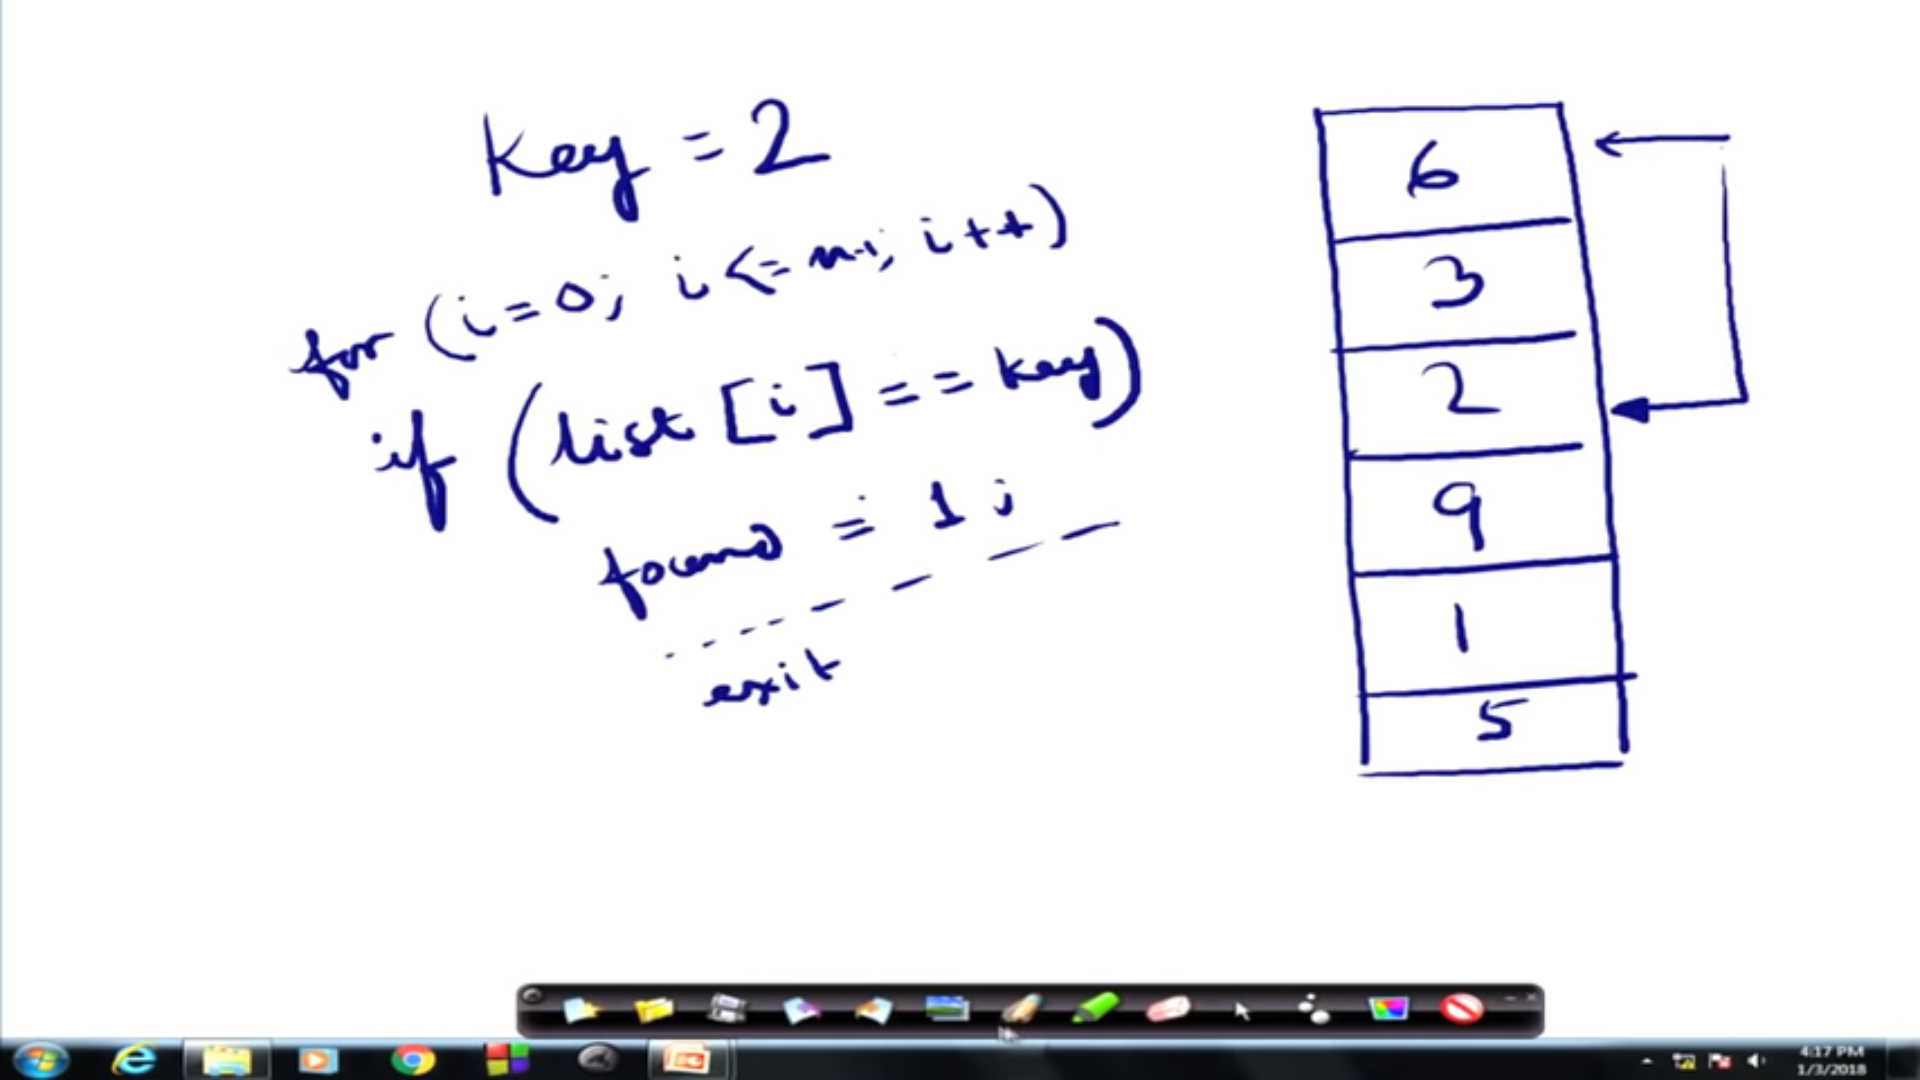 Key = 2
for (i=0; i<=n-1; i++)
if (list [i] == key)
found = 1;
exit
6
3
2
9
1
5
4:17 PM
1/3/2018